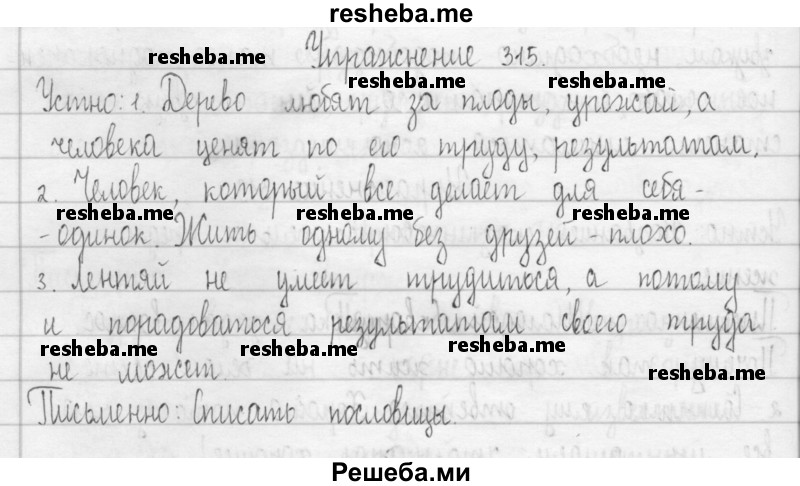 resheba.me
Упражнение 315.
resheba.me resheba.me
resheba.me resheba.me
Устно: 1. Дерево любят за плоды, урожай, а
человека ценят по его труду, результатам.
2. Человек, который все делает для себя -
resheba.me resheba.me resheba.me
- одинок. Жить одному без друзей - плохо.
3. Лентяй не умеет трудиться, а потому
и порадоваться результатам своего труда
resheba.me resheba.me resheba.me
не может. resheba.me
Письменно: Списать пословицы.
Решеба.ми